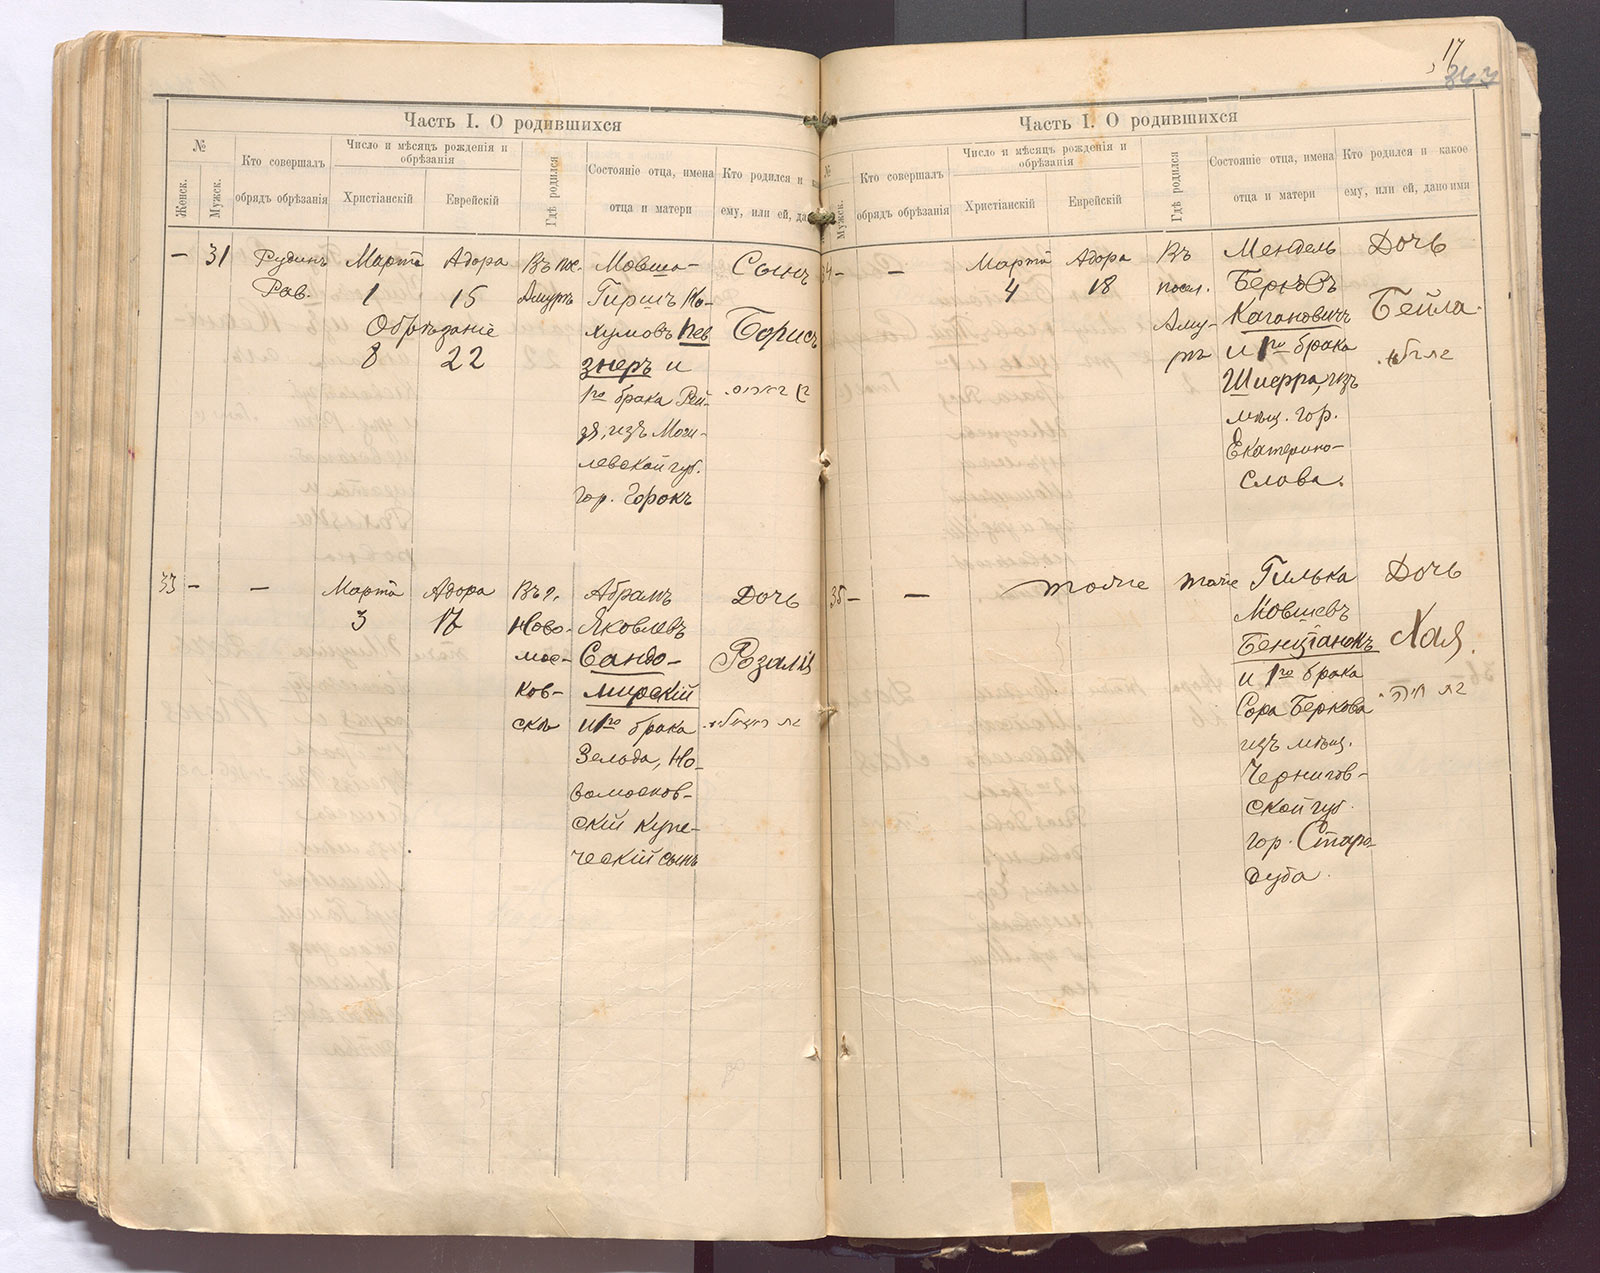 17
343
Часть I. О родившихся
№
Женск.
Мужск.
Кто совершалъ
обрядъ обрѣзанія
Число и мѣсяцъ рожденія и
обрѣзанія
Христіанскій
Еврейскій
Гдѣ родился
Состояніе отца, имена
отца и матери
Кто родился и
ему, или ей, да
– 31
Рудинъ
Рав.
Марта
1
Адора
15
Обрѣзаніе
8 22
Въ пос.
Амуръ
Мовша-
Гиршъ На-
хумовъ Пев
знеръ и
1го брака Рей-
зя, изъ Моги-
левской губ.
гор. Горокъ
Сынъ
Борисъ
33 –
–
Марта
3
Адора
17
Въ г.
Ново-
мос-
ков-
скѣ
Абрамъ
Яковлевъ
Сандо-
мирскій
и 1го брака
Зельда, Но-
вомосков-
скій купе-
ческій сынъ
Дочь
Розалія
Часть I. О родившихся
№
Мужск.
Кто совершалъ
обрядъ обрѣзанія
Число и мѣсяцъ рожденія и
обрѣзанія
Христіанскій
Еврейскій
Гдѣ родился
Состояніе отца, имена
отца и матери
Кто родился и какое
ему, или ей, дано имя
34 –
–
Марта
4
Адора
18
Въ
посел.
Аму-
рѣ
Мендель
Беркъсъ
Кагановичъ
и 1го брака
Шифра, изъ
мѣщ. гор.
Екатерино-
слава.
Дочь
Бейла.
35 –
–
тоже
тоже
Гилька
Мовшевъ
Бенціанокъ
и 1го брака
Сора Беркова
изъ мѣщ.
Чернигов-
ской губ.
гор. Старо
дуба.
Дочь
Хая.
בת חיה